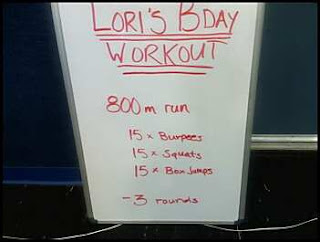 LORI'S BDAY
WORKOUT
800m run
15 x Burpees
15 x Squats
15 x Box Jumps
- 3 rounds